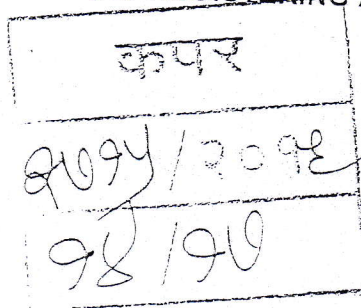 कपर
२७१५/२०१६
१४/१७